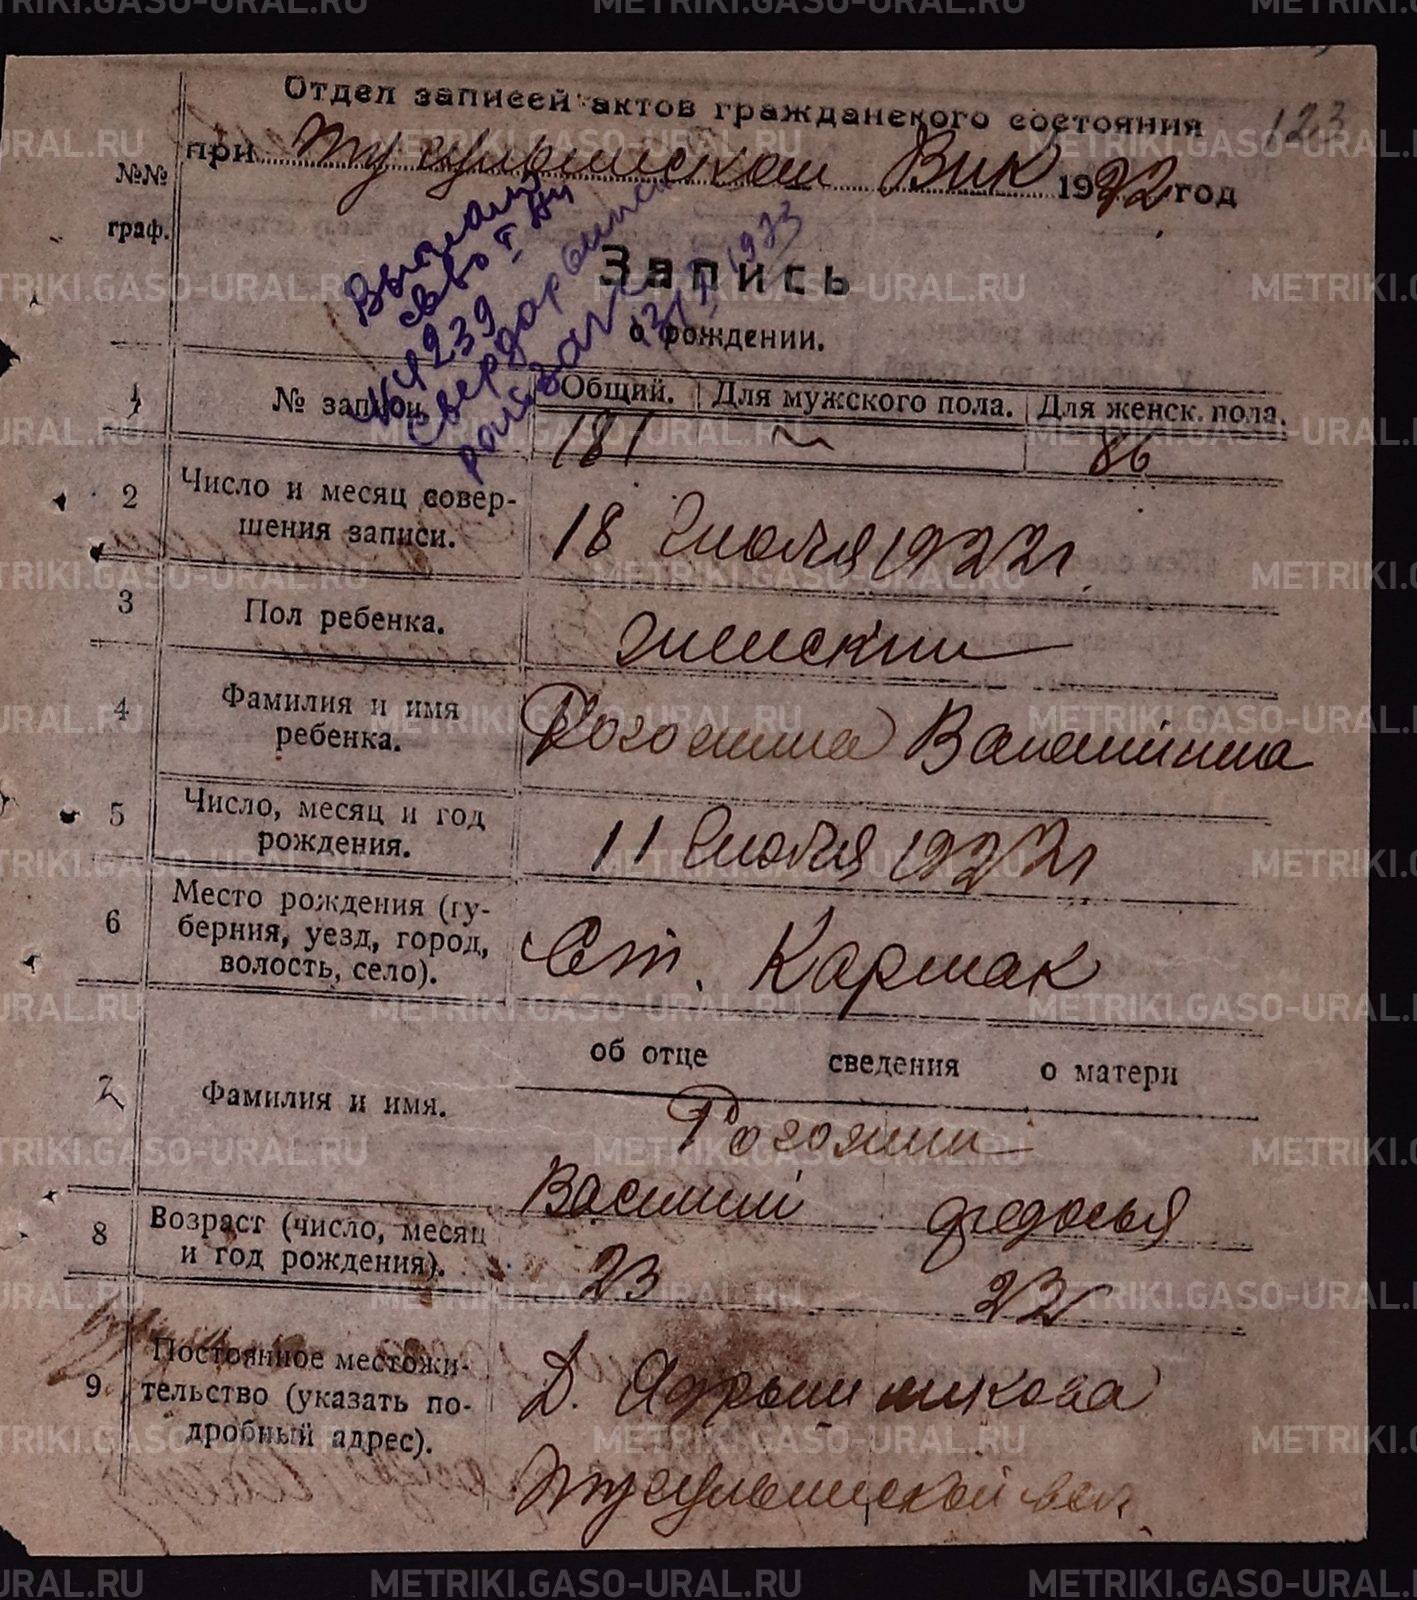 Отдел записей актов гражданского состояния
123
при Тугулымском Вик 1922 год
№№
граф.
Запись
о рождении.
Выдано
1923
1 № записи. Общий. Для мужского пола. Для женск. пола.
181 ~ 86
2 Число и месяц совер-
шения записи.
18 Июля 1922 г.
3 Пол ребенка. женский
4 Фамилия и имя
ребенка.
Рогожина Валентина
5 Число, месяц и год
рождения.
11 Июля 1922 г
6 Место рождения (гу-
берния, уезд, город,
волость, село).
Ст. Кармак
об отце сведения о матери
7 Фамилия и имя.
Рогожины
Василий Федосья
8 Возраст (число, месяц
и год рождения).
23 22
9 Постоянное местожи-
тельство (указать по-
дробный адрес).
Д.
Тугулымской вол.
METRIKI.GASO-URAL.RU